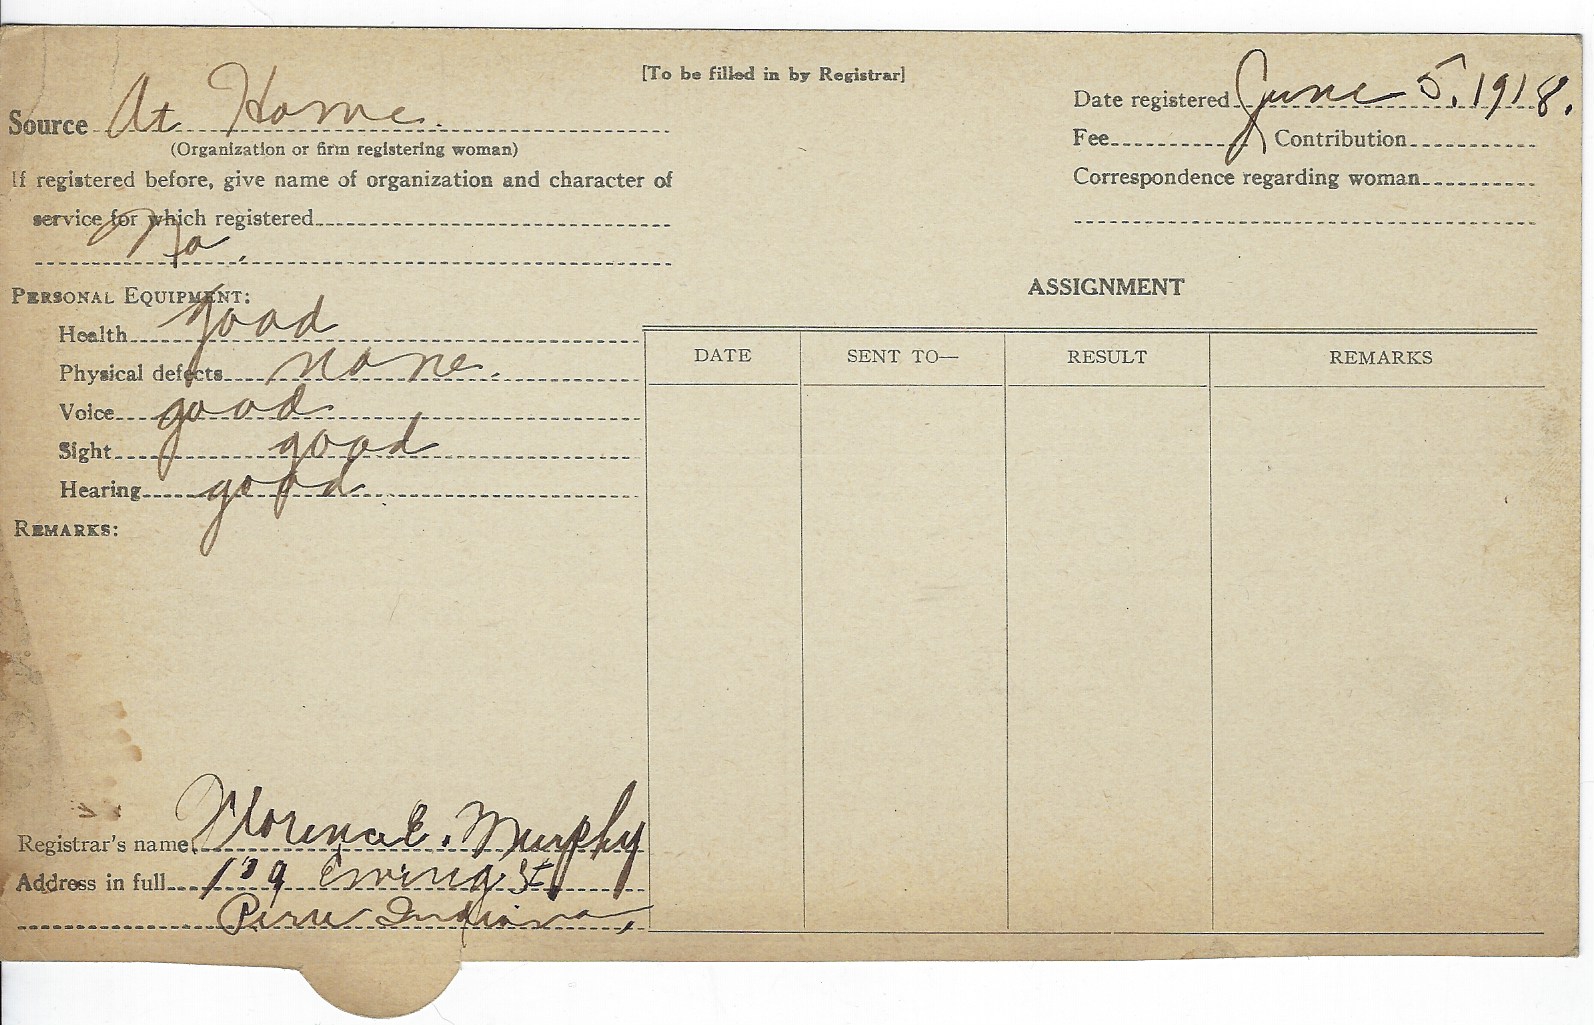 [To be filled in by Registrar]
Source At Home.
(Organization or firm registering woman)
If registered before, give name of organization and character of
service for which registered
No.
Date registered June 5, 1918.
Fee Contribution
Correspondence regarding woman
PERSONAL EQUIPMENT:
Health good
Physical defects none.
Voice good
Sight good
Hearing good
REMARKS:
ASSIGNMENT
DATE SENT TO— RESULT REMARKS
Registrar's name Florence E. Murphy
Address in full Ewing St,
Peru Indiana,